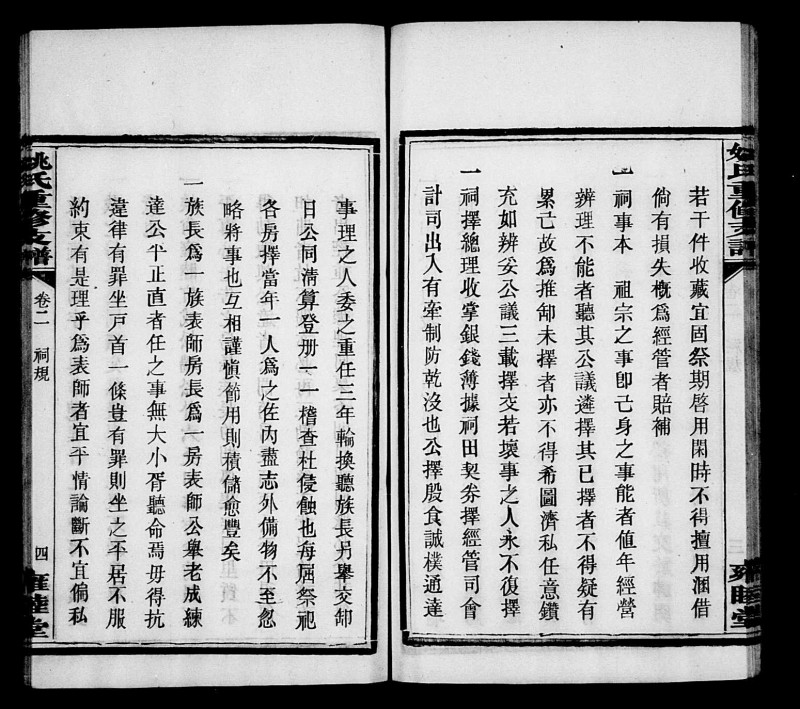 若干件收藏宜固祭期啓用閑時不得擅用溷借
倘有損失槪爲經管者賠補
一祠事本　祖宗之事卽己身之事能者值年經營
辦理不能者聽其公議遴擇其已擇者不得疑有
累己故爲推卸未擇者亦不得希圖濟私任意鑽
充如辨妥公議三載擇交若壞事之人永不復擇
一祠擇總理收掌銀錢薄據祠田契券擇經管司會
計司出入有牽制防乾沒也公擇殷食誠樸通達
姚氏重修支譜
雍睦堂
事理之人委之重任三年輪換聽族長另舉交卸
日公同清算登册一一稽查杜侵蝕也每屆祭祀
各房擇當年一人爲之佐內盡志外備物不至忽
略將事也互相謹愼節用則積儲愈豐矣
一族長爲一族表師房長爲一房表師公舉老成練
達公平正直者任之事無大小胥聽命焉毋得抗
違律有罪坐戸首一條豈有罪則坐之平居不服
約束有是理乎爲表師者宜平情論斷不宜偏私
姚氏重修支譜
卷二　祠規
四
雍睦堂